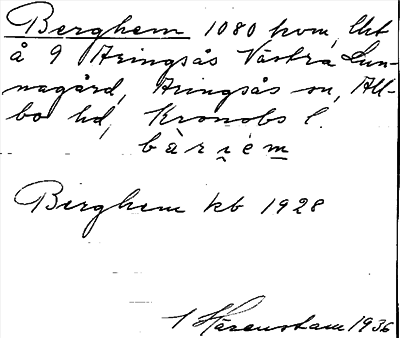 Berghem 1080 kvm, lht
å 9 Aringsås Västra Lun-
nagård, Aringsås sn, All-
bo hd, Kronobs l.
bàrịém
Berghem kb 1928
1 Härenstam 1936